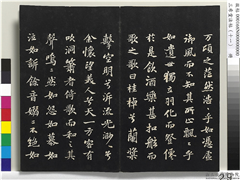 万頃之茫然浩〻乎如馮虛
御風而不知其所止飄〻乎
如遺世獨立羽化而登僊
於是飲酒樂甚扣舷而
歌之歌曰桂棹兮蘭槳
擊空明兮泝流光渺〻兮
余懷望美人兮天一方客有
吹洞簫者倚歌而和之其
聲嗚〻然如怨如慕如
泣如訴餘音嫋〻不絕如